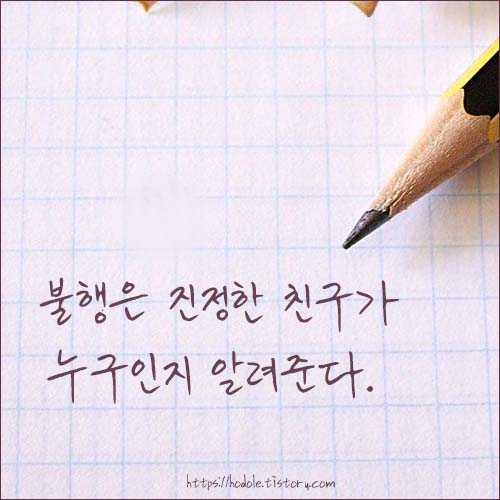 불행은 진정한 친구가
누구인지 알려준다.
https://hodole.tistory.com